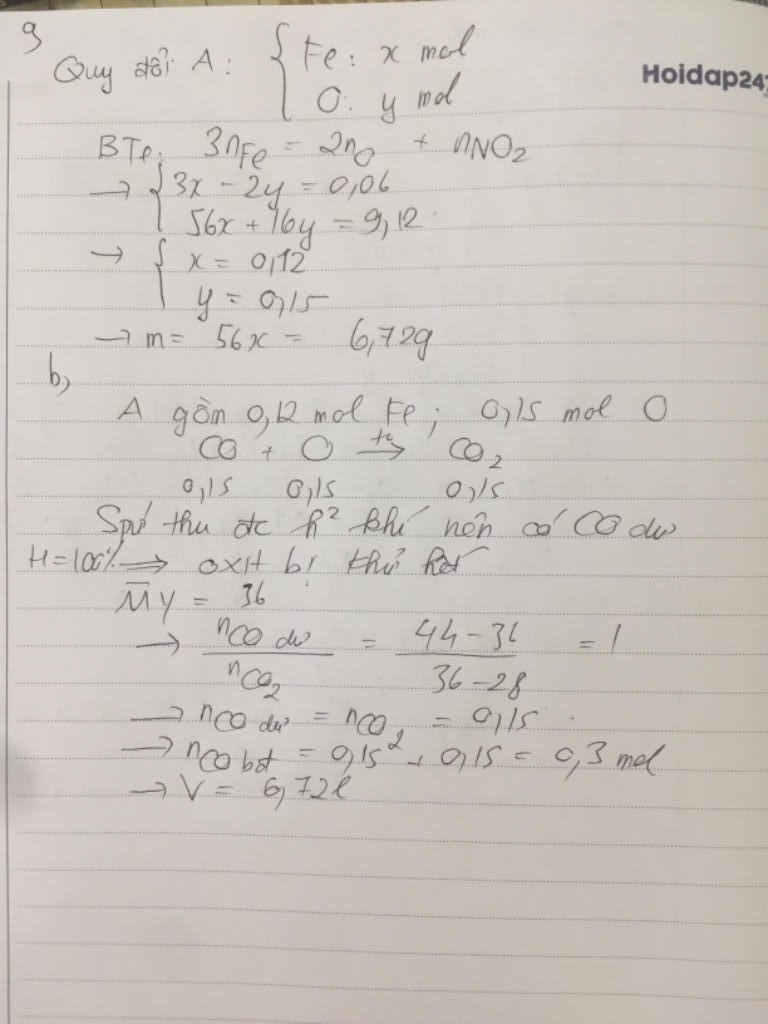 9
Quy đổi A: { Fe: x mol
O: y mol
Hoidap247
BTe: 3nFe = 2nO + nNO2
→ { 3x - 2y = 0,06
56x + 16y = 9,12
→ { x = 0,12
y = 0,15
→ m = 56x = 6,72g
b,
A gồm 0,12 mol Fe; 0,15 mol O
CO + O →(t°) CO2
0,15 0,15 0,15
Spứ thu đc h² khí nên có CO dư
H=100% ⟹ oxit bị khử hết
M̅Y = 36
→ nCO dư / nCO2 = (44-36)/(36-28) = 1
→ nCO dư = nCO2 = 0,15
→ nCO bđ = 0,15 + 0,15 = 0,3 mol
→ V = 6,72l